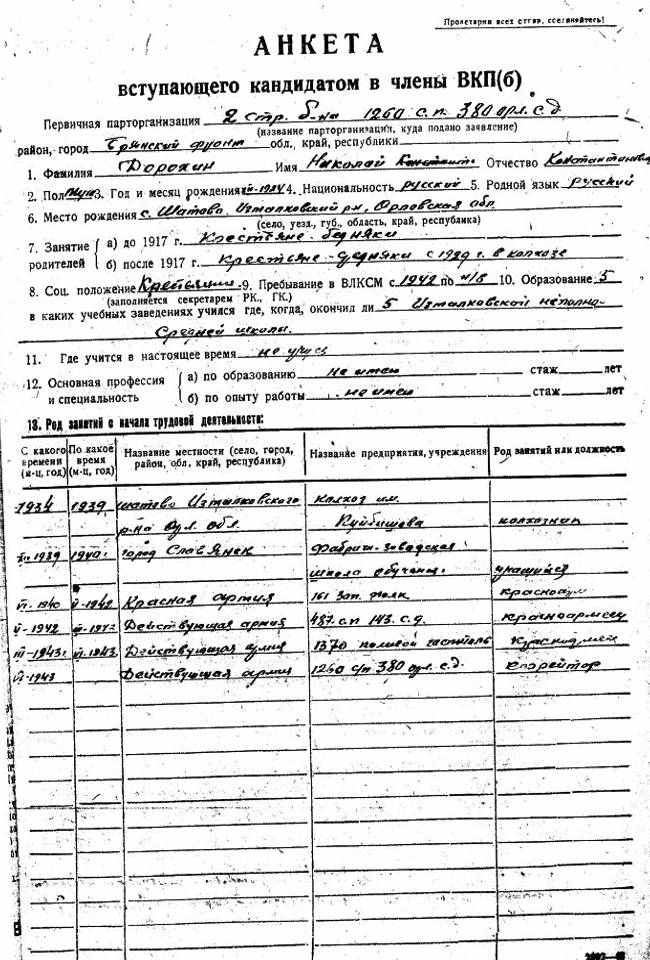 Пролетарии всех стран, соединяйтесь!
АНКЕТА
вступающего кандидатом в члены ВКП(б)
Первичная парторганизация 2 стр. б-на 1260 с.п. 380 орл. с.д.
(название парторганизации, куда подано заявление)
район, город Брянский фронт обл., край, республики
1. Фамилия Дорохин Имя Николай Отчество Константинович
2. Пол муж 3. Год и месяц рождения 1924 4. Национальность русский 5. Родной язык русский
6. Место рождения с. Шатово, Измалковский р-н, Орловская обл.
(село, уезд., губ., область, край, республика)
7. Занятие родителей а) до 1917 г. Крестьяне-бедняки
б) после 1917 г. Крестьяне- с 1929 г. в колхозе
8. Соц. положение 9. Пребывание в ВЛКСМ с 1942 по н/в 10. Образование 5
(заполняется секретарем РК., ГК.)
в каких учебных заведениях учился где, когда, окончил ли 5 Измалковской неполно-
Средней школы.
11. Где учится в настоящее время не учусь
12. Основная профессия и специальность а) по образованию не имею стаж лет
б) по опыту работы не имею стаж лет
13. Род занятий с начала трудовой деятельности:
С какого времени (м-ц, год) По какое время (м-ц, год) Название местности (село, город, район, обл, край, республика) Название предприятия, учреждения Род занятий или должность
1934 1939 Шатово Измалковского колхоз им.
р-на Орл. обл. Куйбишева колхозник
1939 1940 г. город Славянск Фабрич. заводская
школа обучения. учащийся
VI-1940 V-1942 Красная армия 161 зап. полк
V-1942 Действующая армия 487 с.п. 143 с.д. Красноармеец
III-1943 г. VI-1943 Действующая армия 1370 полевой госпиталь
VI-1943 Действующая армия 1260 с/п 380 орл. с.д. Ефрейтор